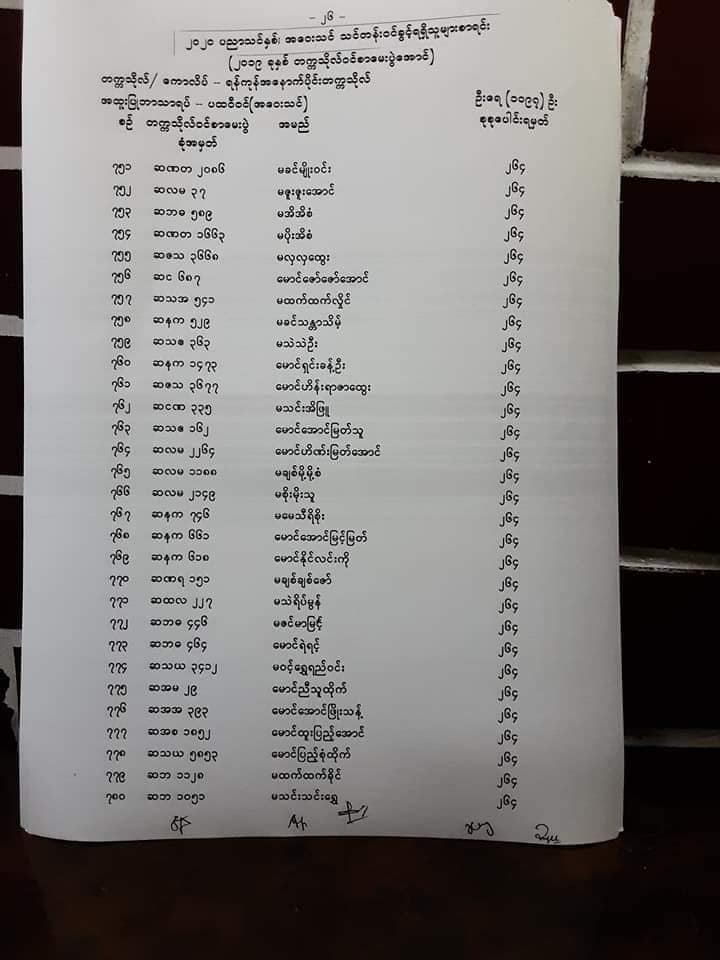 – ၂၆ –
၂၀၂၀ ပညာသင်နှစ်၊ အဝေးသင် သင်တန်းဝင်ခွင့်ရရှိသူများစာရင်း
(၂၀၁၉ ခုနှစ် တက္ကသိုလ်ဝင်စာမေးပွဲအောင်)
တက္ကသိုလ်/ ကောလိပ် – ရန်ကုန်အနောက်ပိုင်းတက္ကသိုလ်
အထူးပြုဘာသာရပ် – ပထဝီဝင်(အဝေးသင်) ဦးရေ (၁၁၉၇) ဦး
စဉ် တက္ကသိုလ်ဝင်စာမေးပွဲ အမည် စုစုပေါင်းရမှတ်
ခုံအမှတ်
၇၅၁ ဆဏတ ၂၀၈၆ မခင်မျိုးဝင်း ၂၆၄
၇၅၂ ဆလမ ၃၇ မဇူးဇူးအောင် ၂၆၄
၇၅၃ ဆဘခ ၅၈၉ မအိအိစံ ၂၆၄
၇၅၄ ဆဏတ ၁၆၆၃ မပိုးအိစံ ၂၆၄
၇၅၅ ဆဇသ ၃၆၆၈ မလှလှထွေး ၂၆၄
၇၅၆ ဆင ၆၈၇ မောင်ဇော်ဇော်အောင် ၂၆၄
၇၅၇ ဆသအ ၅၄၁ မထက်ထက်လှိုင် ၂၆၄
၇၅၈ ဆနက ၅၂၉ မခင်သန္တာသိမ့် ၂၆၄
၇၅၉ ဆသဇ ၃၆၃ မသဲသဲဦး ၂၆၄
၇၆၀ ဆနက ၁၄၇၃ မောင်ရှင်းခန့်ဦး ၂၆၄
၇၆၁ ဆဇသ ၃၆၇၇ မောင်ဟိန်းရာဇာထွေး ၂၆၄
၇၆၂ ဆငဏ ၃၃၅ မသင်းအိဖြူ ၂၆၄
၇၆၃ ဆသဇ ၁၆၂ မောင်အောင်မြတ်သူ ၂၆၄
၇၆၄ ဆလမ ၂၂၆၄ မောင်ဟိဏ်းမြတ်အောင် ၂၆၄
၇၆၅ ဆလမ ၁၁၈၈ မချစ်မို့မို့စံ ၂၆၄
၇၆၆ ဆလမ ၂၁၄၉ မစိုးမိုးသူ ၂၆၄
၇၆၇ ဆနက ၇၄၆ မမေသီရိစိုး ၂၆၄
၇၆၈ ဆနက ၆၆၁ မောင်အောင်မြင့်မြတ် ၂၆၄
၇၆၉ ဆနက ၆၁၈ မောင်နိုင်လင်းကို ၂၆၄
၇၇၀ ဆဏရ ၁၅၁ မချစ်ချစ်ဇော် ၂၆၄
၇၇၁ ဆထလ ၂၂၇ မသဲရိပ်မွန် ၂၆၄
၇၇၂ ဆဘခ ၄၄၆ မဇင်မာမြင့် ၂၆၄
၇၇၃ ဆဘခ ၄၆၄ မောင်ရဲရင့် ၂၆၄
၇၇၄ ဆသယ ၃၄၁၂ မဝင့်ရွှေရည်ဝင်း ၂၆၄
၇၇၅ ဆအမ ၂၉ မောင်ညီသူထိုက် ၂၆၄
၇၇၆ ဆအအ ၃၉၃ မောင်အောင်ဖြိုးသန့် ၂၆၄
၇၇၇ ဆအစ ၁၈၅၂ မောင်ထူးပြည့်အောင် ၂၆၄
၇၇၈ ဆသယ ၅၈၅၃ မောင်ပြည့်စုံထိုက် ၂၆၄
၇၇၉ ဆဘ ၁၁၂၈ မထက်ထက်ခိုင် ၂၆၄
၇၈၀ ဆဘ ၁၀၅၁ မသင်းသင်းရွှေ ၂၆၄